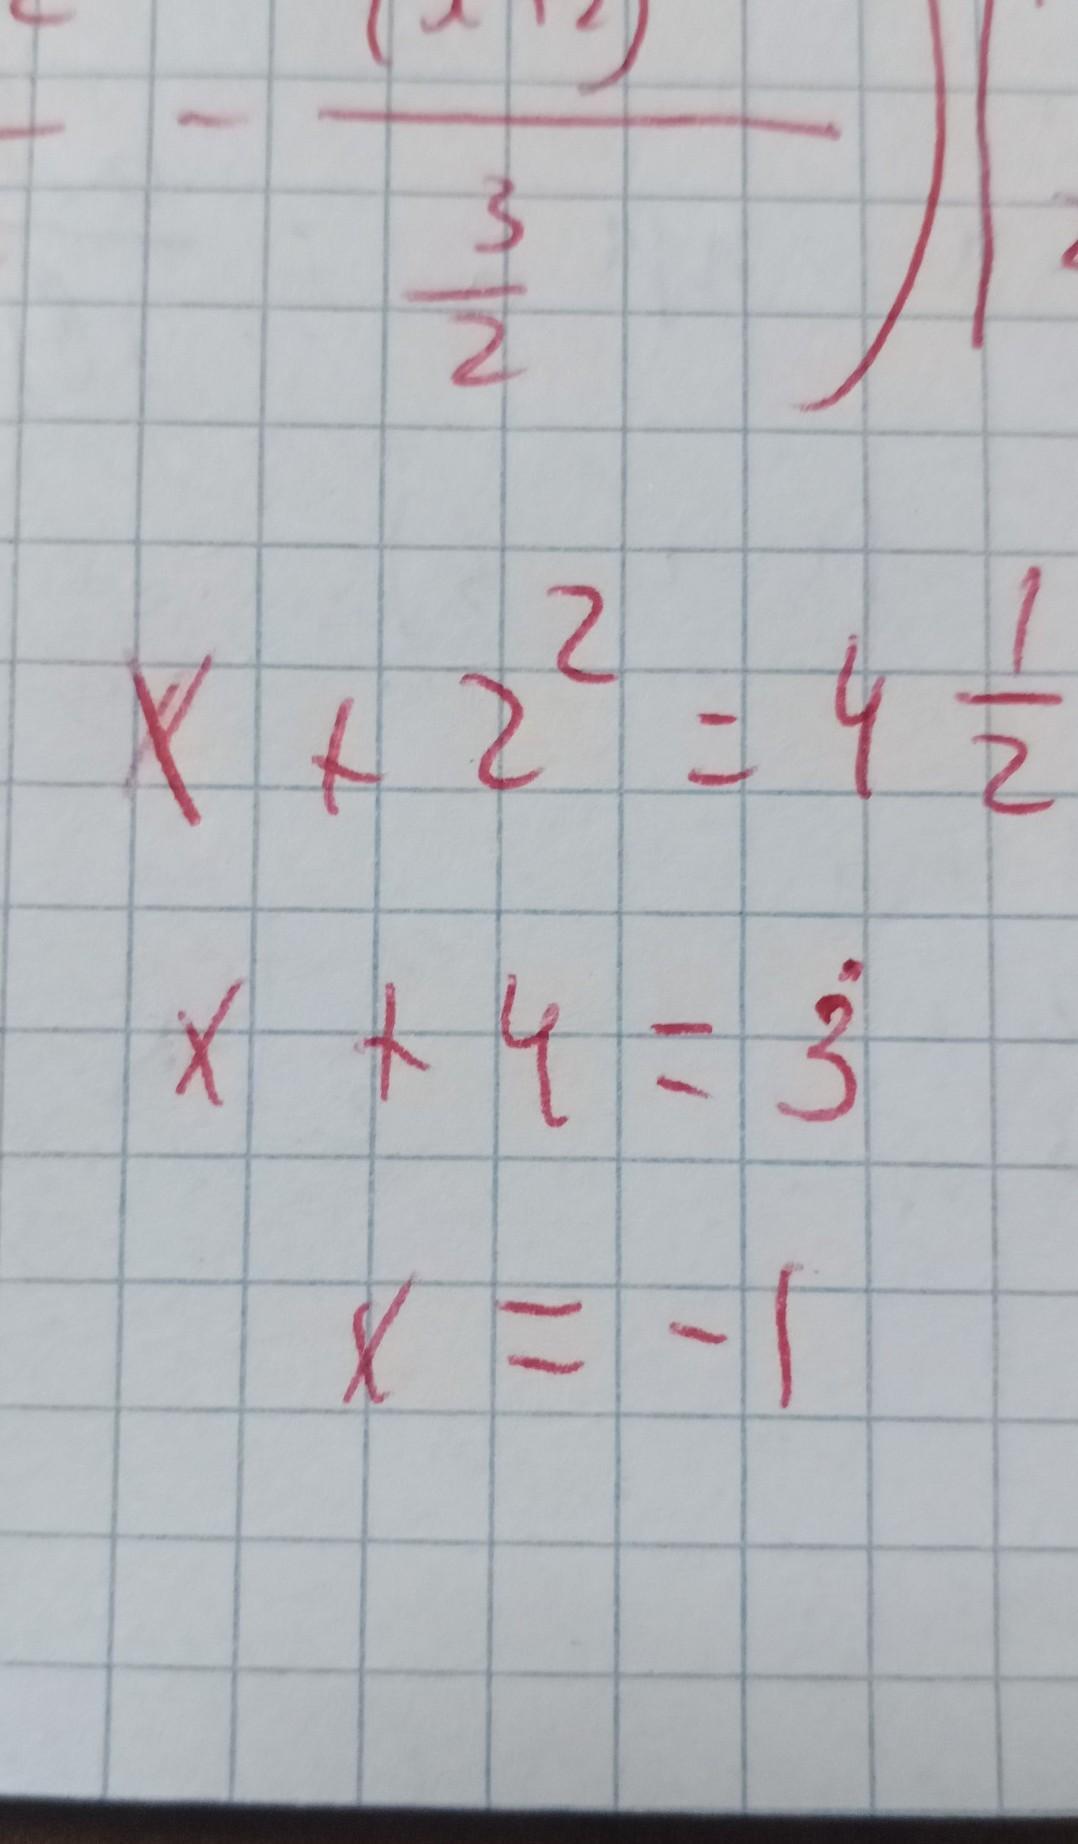 (x+2)
- 3/2
x + 2² = 4 1/2
x + 4 = 3
x = -1